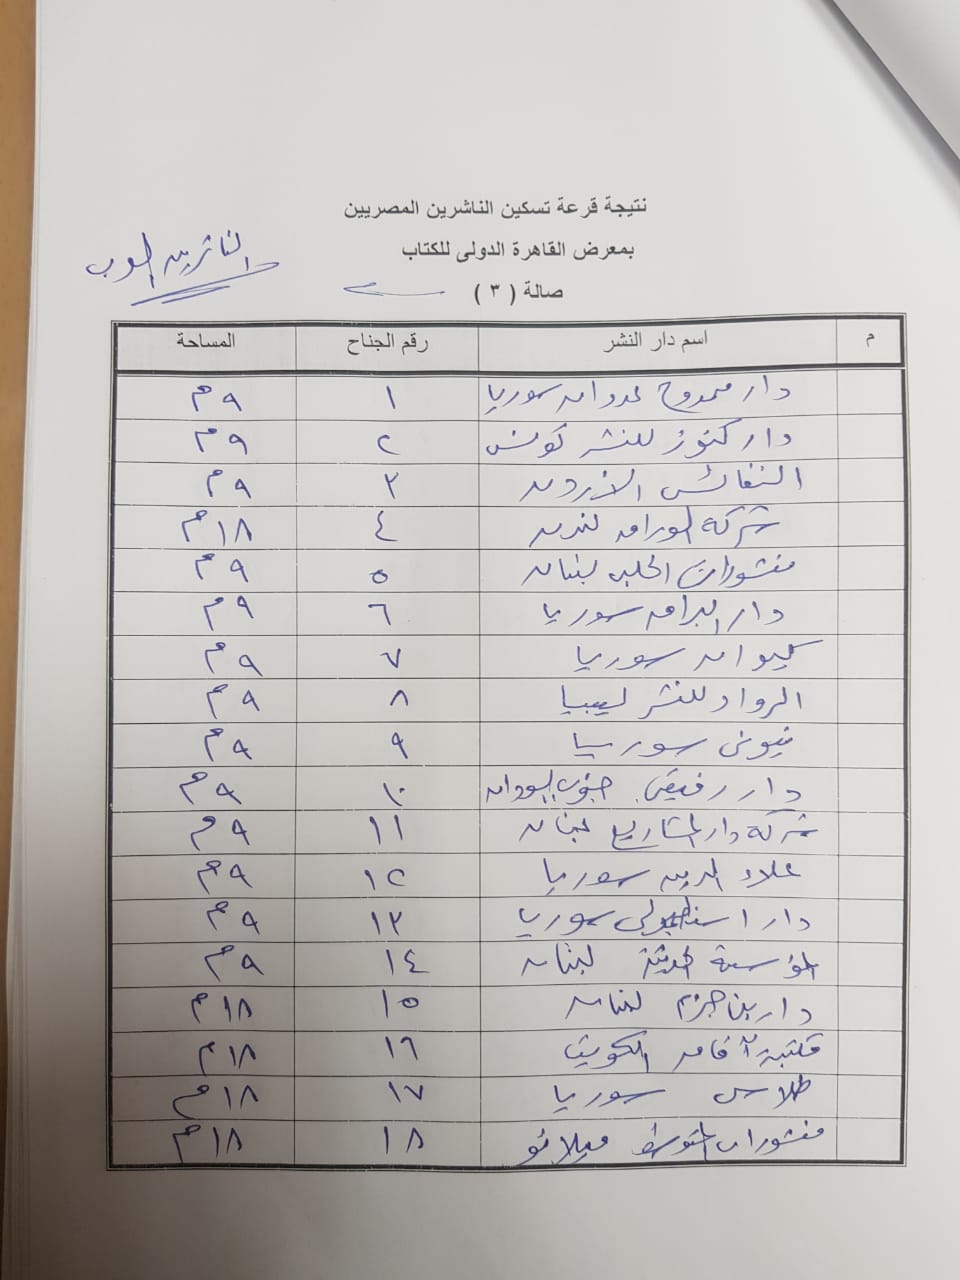 نتيجة قرعة تسكين الناشرين المصريين
بمعرض القاهرة الدولى للكتاب
الناشرين العرب
صالة ( ٣ )
م اسم دار النشر رقم الجناح المساحة
دار ممدوح عدوان سوريا ١ ٩م
دار كنوز للنشر تونس ٢ ٩م
النفائس الأردن ٣ ٩م
شركة الوراق لندن ٤ ١٨م
منشورات الحلبى لبنان ٥ ٩م
دار البراق سوريا ٦ ٩م
كيوان سوريا ٧ ٩م
الرواد للنشر ليبيا ٨ ٩م
نينوى سوريا ٩ ٩م
دار رفيقى جنوب السودان ١٠ ٩م
شركة دار المشاريع لبنان ١١ ٩م
علاء الدين سوريا ١٢ ٩م
دار اسطنبولى سوريا ١٣ ٩م
المؤسسة الحديثة لبنان ١٤ ٩م
دار بن حزم لبنان ١٥ ١٨م
مكتبة آفاق الكويت ١٦ ١٨م
طلاس سوريا ١٧ ١٨م
منشورات المتوسط ميلانو ١٨ ١٨م